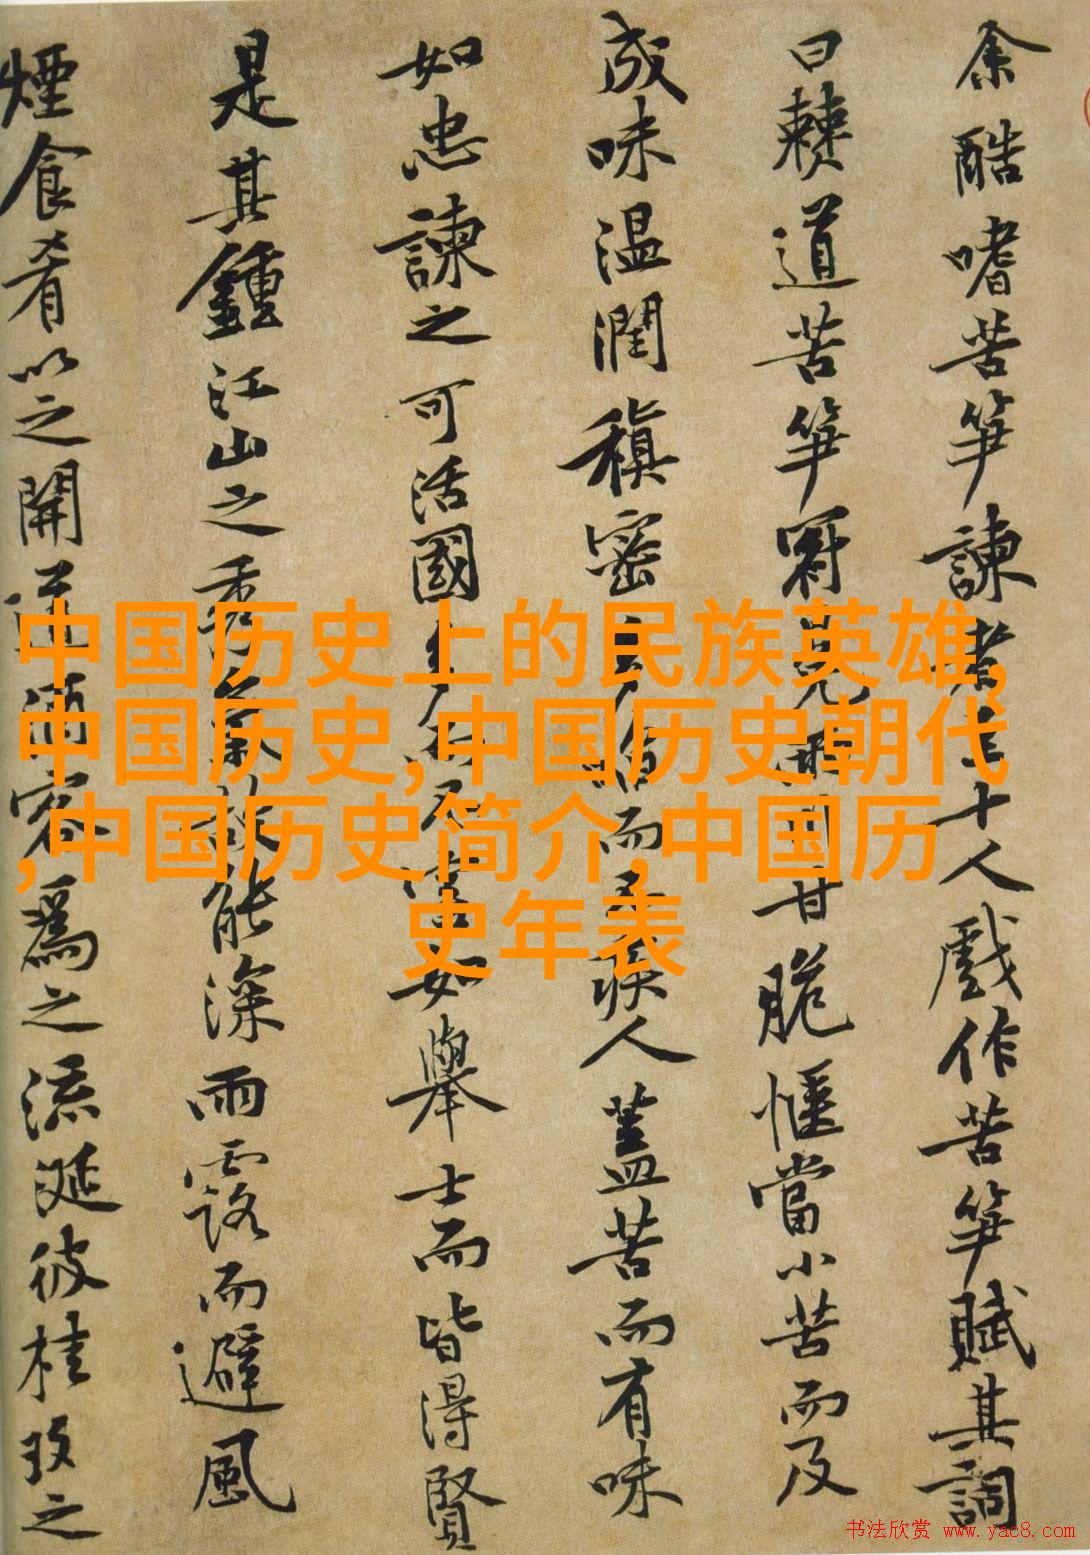 余酷嗜苦笋諫者至十人戲作苦笋賦其詞
曰僰道苦笋冠冕兩川甘脆惬當小苦而及
成味温潤稹密多啗而不疾人蓋苦而有味
如忠諫之可活國多而不害如舉士而皆得賢
是其鍾江山之秀氣故能深雨露而避風
煙食肴以之開道酒客爲之流涎彼桂玫之
中国历史上的民族英雄,
中国历史,中国历史朝代
,中国历史简介,中国历
史年表
书法欣赏 www.yac8.com